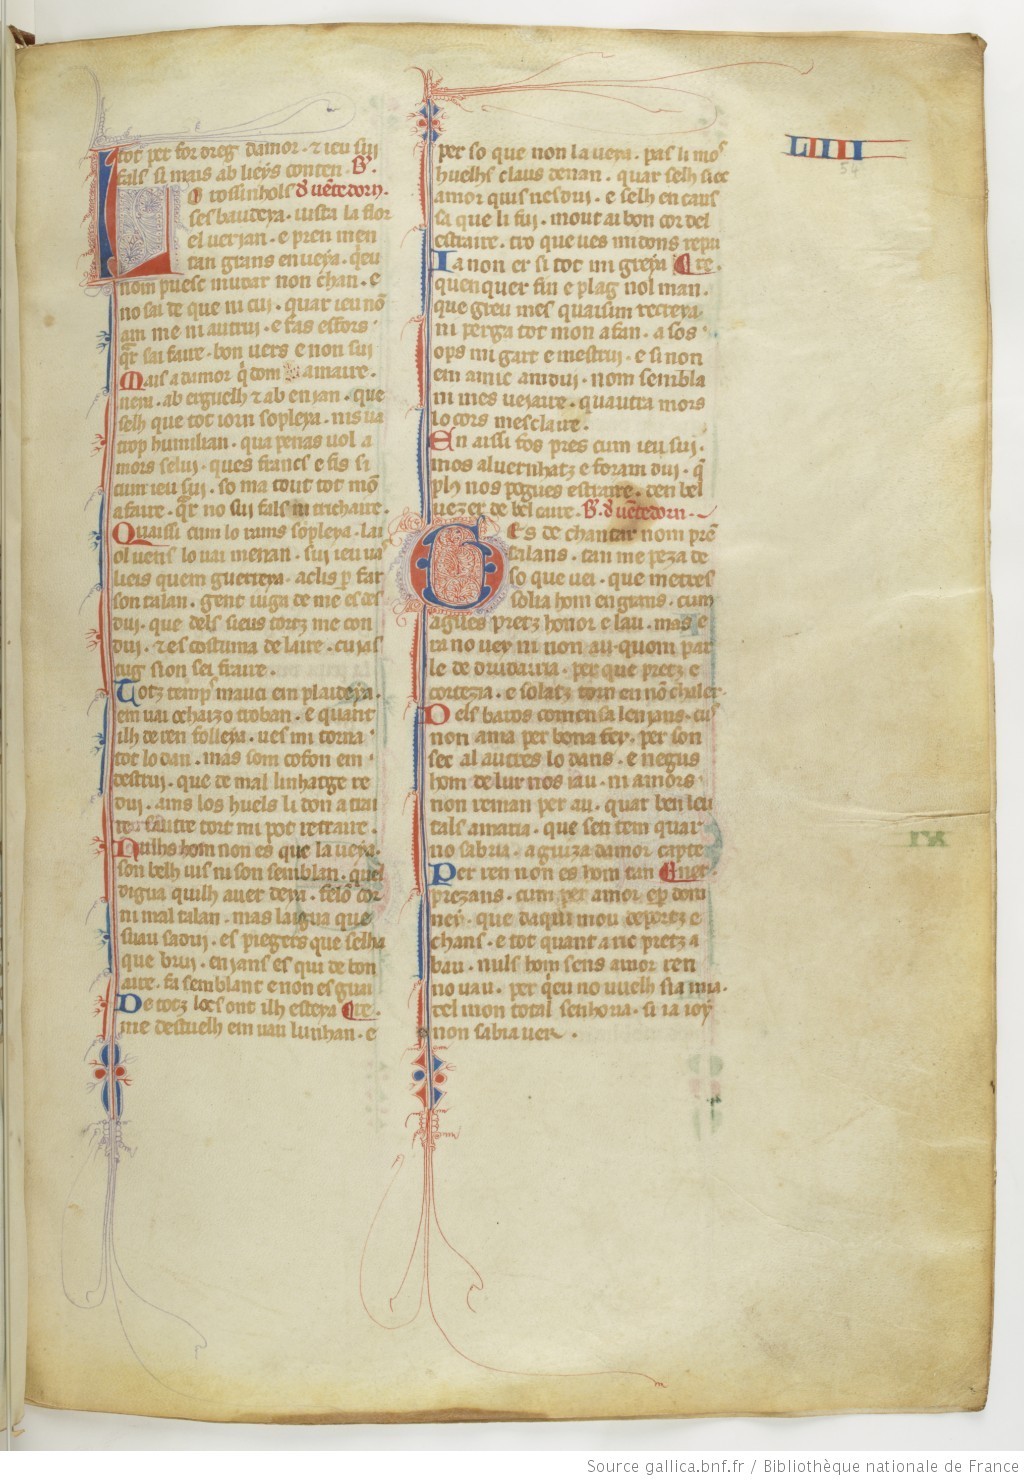 tot per for dreg damor · ⁊ ieu sui
fals si mais ab lieys conten · B̃.
O rossinhols d̃ uẽtedorn.
ses baudeya · iusta la flor
el uerian · e pren men
tan grans enueya · q̃eu
nom puesc mudar non chan · e
no sai de que ni cui · quar ieu nõ
am me ni autrui · e fas esfors ·
q̃r sai faire · bon uers e non sui
Mais a damor q̃ dom amaire ·
neni · ab erguelh ⁊ ab enian · que
selh que tot iorn sopleya · nis ua
trop humilian · qua penas uol a
mors selui · ques francs e fis si
cum ieu sui · so ma tout tot mõ
afaire · q̃r no sui fals ni trichaire ·
Quaissi cum lo rams sopleya · lai
ol uens lo uai menan · sui ieu uas
lieis quem guerreya · aclis p̱ far
son talan · gent iuga de me es des
dui · que dels sieus tortz me con
dui · ⁊ es costuma de laire · cuias
tug sion sei fraire ·
Totz temps mauci em plaideya ·
em uai ochaizo troban · e quant
ilh de ren folleya · ues mi torna
tot lo dan · mas som cofon em
destrui · que de mal linhatge re
dui · ams los huels li don a trai
re sautre tort mi pot retraire ·
Nulhs hom non es que la ueya ·
son belh uis ni son semblan · quel
digua quilh auer deya · felõ cor
ni mal talan · mas laigua que
suau sadui · es piegers que selha
que brui · enians es qui de bon
aire · fa semblant e non es guai
De totz locs ont ilh esteya re ·
me destuelh em uau lunhan · e
per so que non la ueya · pas li mos
huelhs claus denan · quar selh siec
amor quis nesdui · e selh encaus
sa que li fui · mout ai bon cor del
estraire · tro que ues midons repai
Ia non er si tot mi greya re ·
quenquer fin e plag nol man ·
que greu mes quaisum recreya
ni perga tot mon afan · a sos
ops mi gart e mestrui · e si non
em amic amdui · nom sembla
ni mes ueiaire · quautra mors
lo cors mesclaire ·
En aissi fos pres cum ieu sui ·
mos aluernhatz e foram dui · q̃
plus nos pogues estraire · den bel
uezer de bel caire · B̃. d̃ uẽtedorn ·
Ges de chantar nom pren
talans · tan me peza de
so que uei · que metres
solia hom en grans · cum
agues pretz honor e lau · mas e
ra no uei ni non au · quom par
le de drudaria · per que pretz e
cortezia · e solatz torn en nõ chaler ·
Dels baros comensa lenians · cus
non ama per bona fey · per son
sec al autres lo dans · e negus
hom de lur nos iau · ni amors
non reman per au · quar ben leu
tals amaria · que sen tem quar
no sabria · a guiza damor capte
Per ren non es hom tan ner ·
prezans · cum per amor e p̱ dom
ney · que daqui mou deportz e
chans · e tot quant a ric pretz a
bau · nuls hom sens amor ren
no uau · per q̃eu no uuelh sia mia ·
del mon total senhoria · si ia ioy
non sabia uer ·
LIIII
54
Source gallica.bnf.fr / Bibliothèque nationale de France